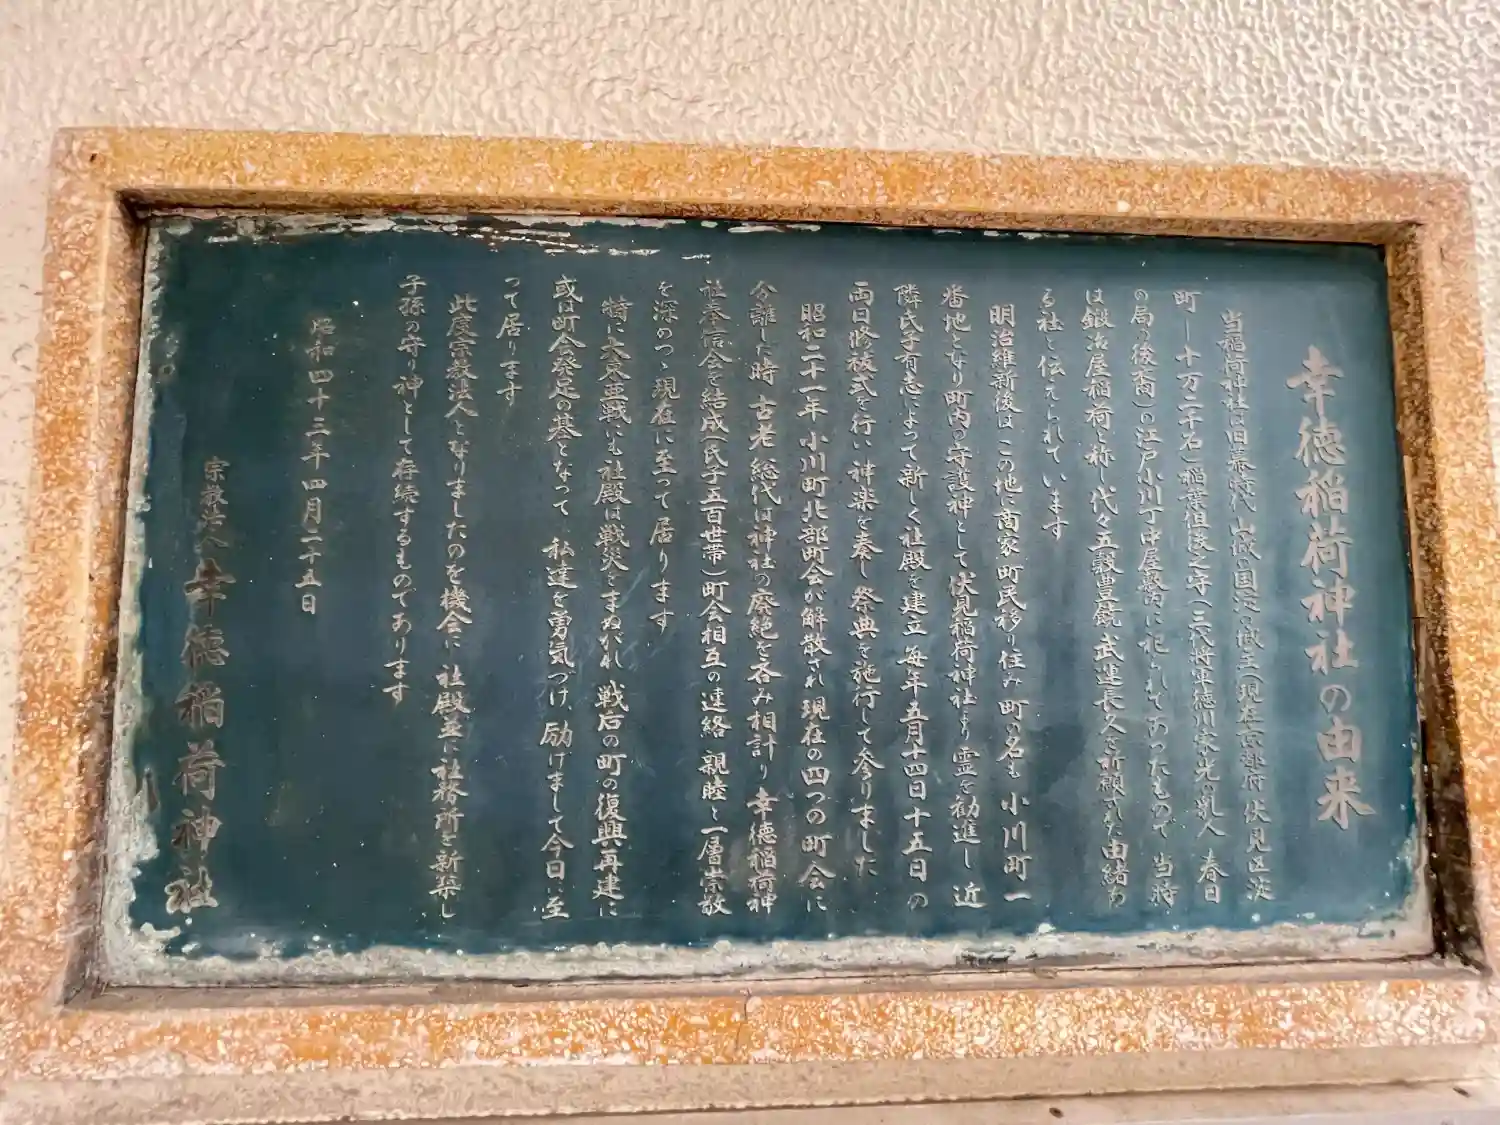 幸徳稲荷神社の由来
当稲荷神社は旧幕時代 山城の国淀の城主(現在京都府 伏見区淀
町―十万二千石)稲葉但後之守(三代将軍徳川家光の乳人 春日
の局の後裔)の江戸小川丁中屋敷内に祀られてあったもので 当時
は鍛冶屋稲荷と称し代々五穀豊饒 武運長久を祈願された由緒あ
る社と伝えられています
明治維新後はこの地に商家 町民移り住み 町の名も 小川町一
番地となり町内の守護神として伏見稲荷神社より霊を勧進し 近
隣氏子有志によって新しく社殿を建立 毎年五月十四日十五日の
両日修祓式を行い 神楽を奏し 祭典を施行して参りました
昭和二十一年 小川町北部町会が解散され 現在の四つの町会に
分離した時 古老 総代は神社の廃絶を呑み相計り 幸徳稲荷神
社奉信会を結成(氏子五百世帯)町会相互の連絡 親睦と一層崇敬
を深めつゝ現在に至って居ります
特に大東亜戦にも社殿は戦災をまぬがれ 戦后の町の復興再建に
或は町会発足の基となって 私達を勇気づけ 励けまして今日に至
って居ります
此度宗教法人となりましたのを機会に 社殿並に社務所を新築し
子孫の守り神として存続するものであります
昭和四十三年四月二十五日
宗教法人 幸徳稲荷神社